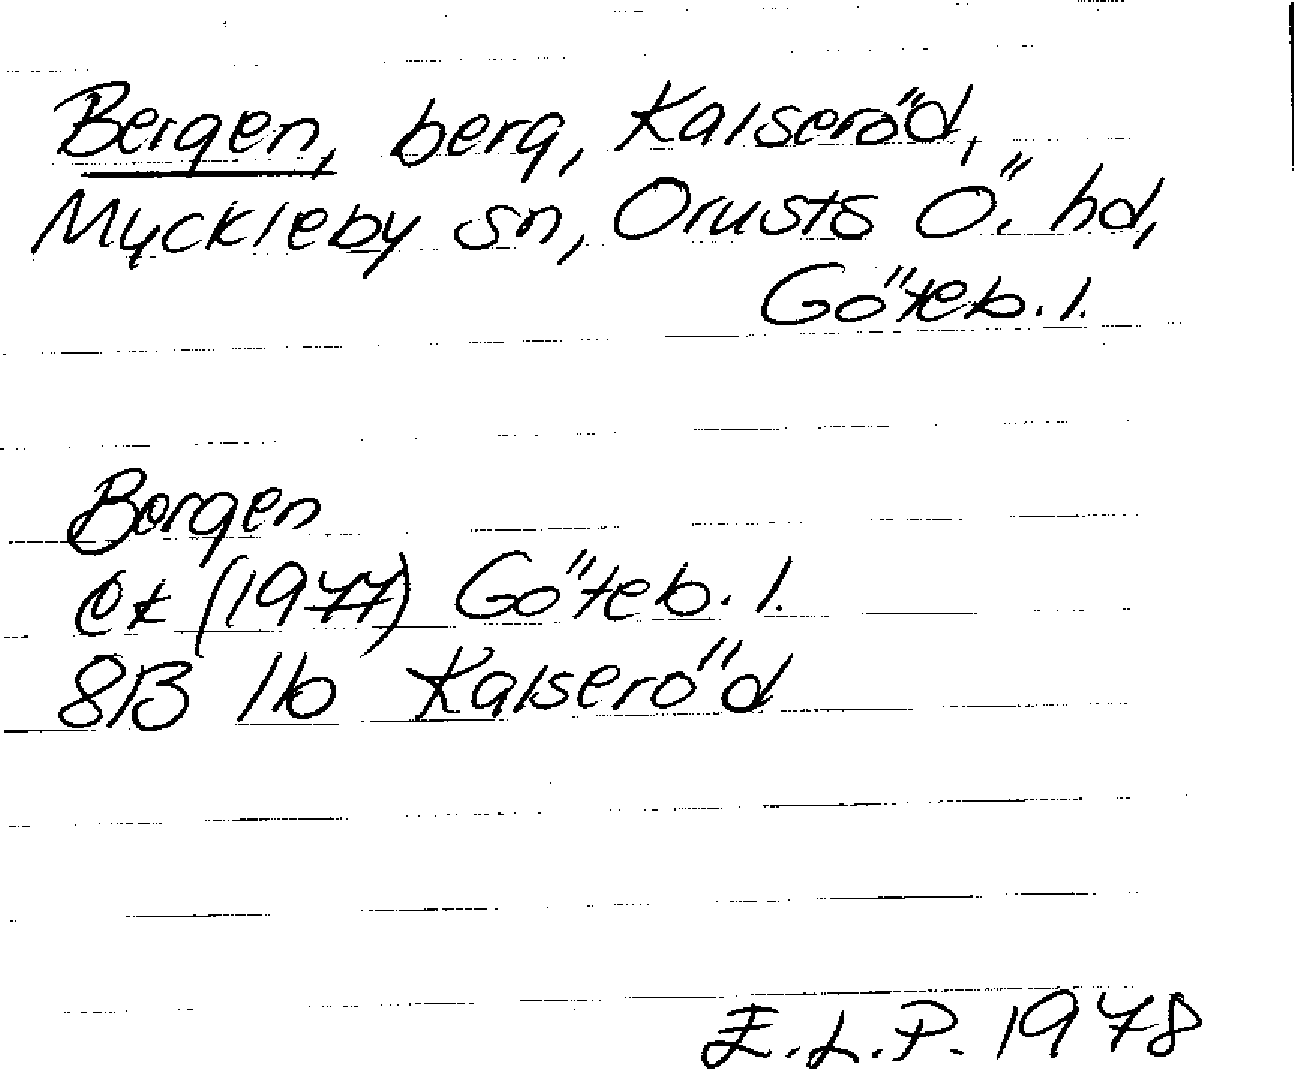 Bergen, berg, Kalseröd,
Myckleby sn, Orusts Ö. hd,
Göteb. l.
Borgen
ek (1977) Göteb. l.
8B 1b Kalseröd
E.L.P. 1978